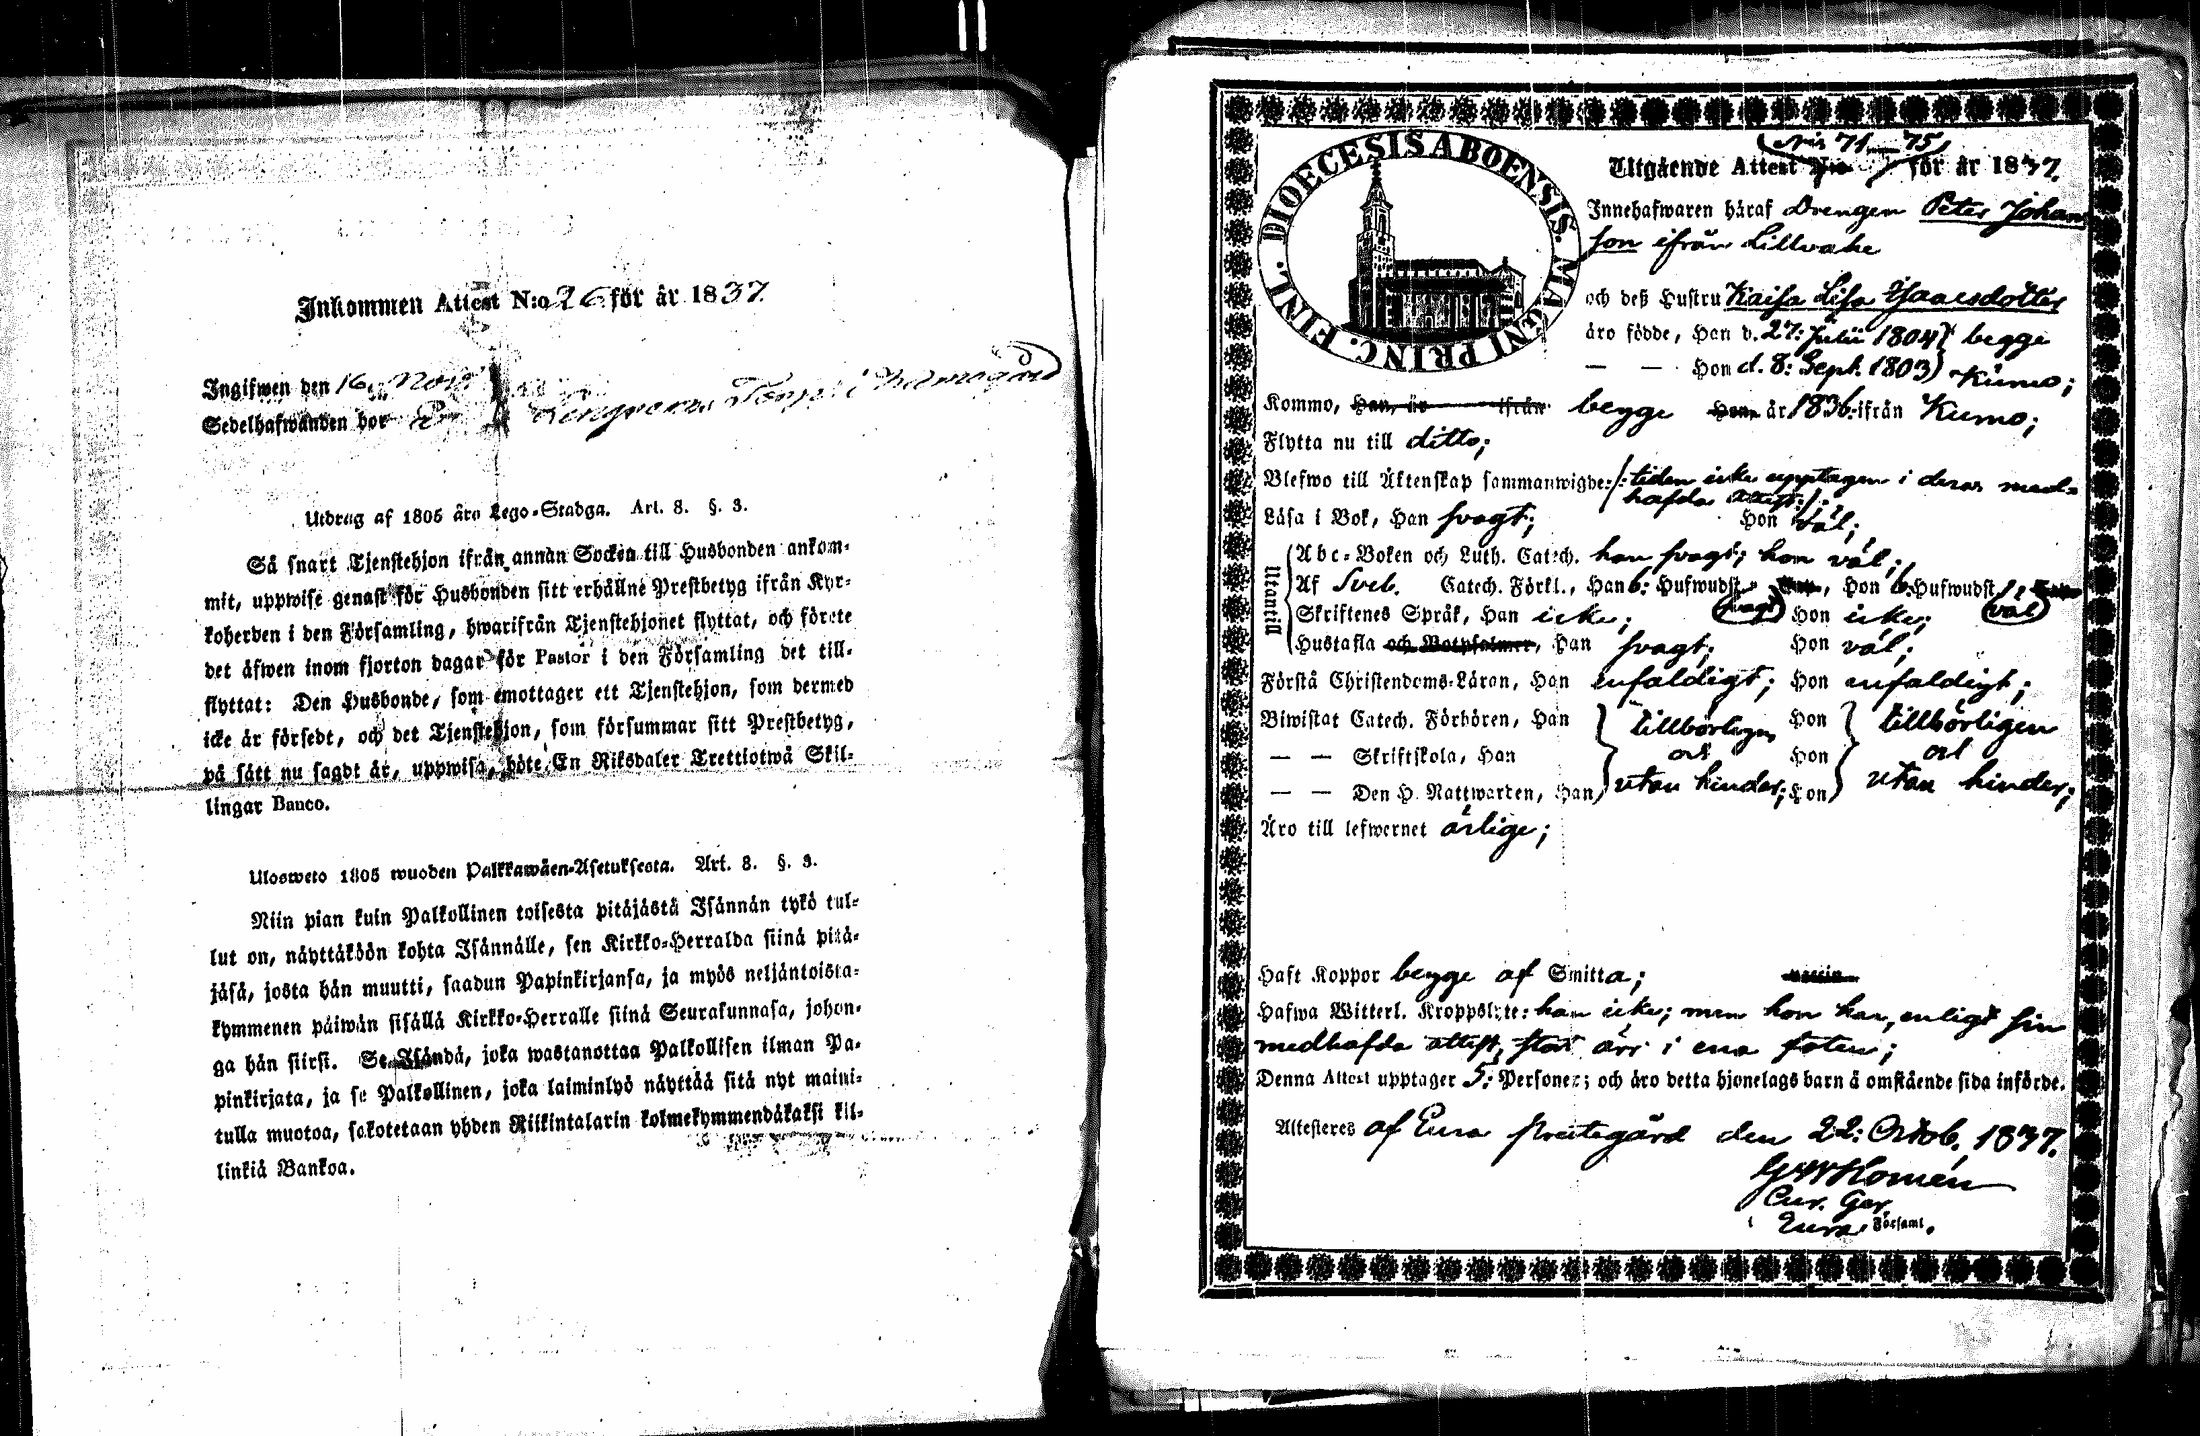 Inkommen Attest N:o 26 för år 1837.
Ingifwen den 16 Nov.
Sedelhafwanden bor Torp i
Utdrag af 1805 års Lego-Stadga. Art. 8. §. 3.
Så snart Tjenstehjon ifrån annan Socken till Husbonden ankom-
mit, uppwise genast för Husbonden sitt erhållne Prestbetyg ifrån Kyr-
koherden i den Församling, hwarifrån Tjenstehjonet flyttat, och förete
det äfwen inom fjorton dagar för Pastor i den Församling det till-
flyttat: Den Husbonde, som emottager ett Tjenstehjon, som dermed
icke är försedt, och det Tjenstehjon, som försummar sitt Prestbetyg,
på sätt nu sagdt är, uppwisa, böte En Riksdaler Trettiotwå Skil-
lingar Banco.
Ulosweto 1805 wuoden Palkkawäen-Asetuksesta. Art. 8. §. 3.
Niin pian kuin Palkollinen toisesta pitäjästä Isännän tykö tul-
lut on, näyttäköön kohta Isännälle, sen Kirkko-Herralda siinä pitä-
jäsä, josta hän muutti, saadun Papinkirjansa, ja myös neljäntoista-
kymmenen päiwän sisällä Kirkko-Herralle siinä Seurakunnasa, johon-
ga hän siirsi. Se Isändä, joka wastanottaa Palkollisen ilman Pa-
pinkirjata, ja se Palkollinen, joka laiminlyö näyttää sitä nyt maini-
tulla muotoa, sakotetaan yhden Riikintalarin kolmekymmendäkaksi kil-
linkiä Bankoa.
DIOECESIS ABOENSIS. MAGNI PRINC. FINL.
N:is 71–75
Utgående Attest för år 1837.
Innehafwaren häraf Drengen Peter Johan
son ifrån Lillvahe
och deß Hustru Kaisa Lisa Isaacsdotter
äro födde, Han d. 27: Julii 1804 begge
— — Hon d. 8: Sept. 1803 Kumo;
Kommo, Han, är ifrån begge Hon, år 1836: ifrån Kumo;
Flytta nu till ditto;
Blefwo till Äktenskap sammanwigde: /: tiden icke upptagen i deras med-
hafda attest: /;
Läsa i Bok, Han svagt; Hon väl;
Utantill
Abc-Boken och Luth. Catech. han svagt; hon väl;
Af Sveb. Catech. Förkl., Han 6: Hufwudst. , Hon 6: Hufwudst.
(svagt) (väl)
Skriftenes Språk, Han icke; Hon icke;
Hustafla och Botpsalmer, Han svagt; Hon väl;
Förstå Christendoms-Läran, Han enfaldigt; Hon enfaldigt;
Biwistat Catech. Förhören, Han tillbörligen Hon tillbörligen
— — Skriftskola, Han och Hon och
— — Den H. Nattwarden, Han utan hinder; Hon utan hinder;
Äro till lefwernet ärlige;
Haft Koppor begge af Smitta;
Hafwa Witterl. Kroppslyte: han icke; men hon har, enligt sin
medhafda attest, stort ärr i ena foten;
Denna Attest upptager 5: Personer; och äro detta hjonelags barn å omstående sida införde.
Attesteres af Eura prestegård den 22: Octob. 1837.
G W Homén
Cur. Ger.
i Eura Församl.